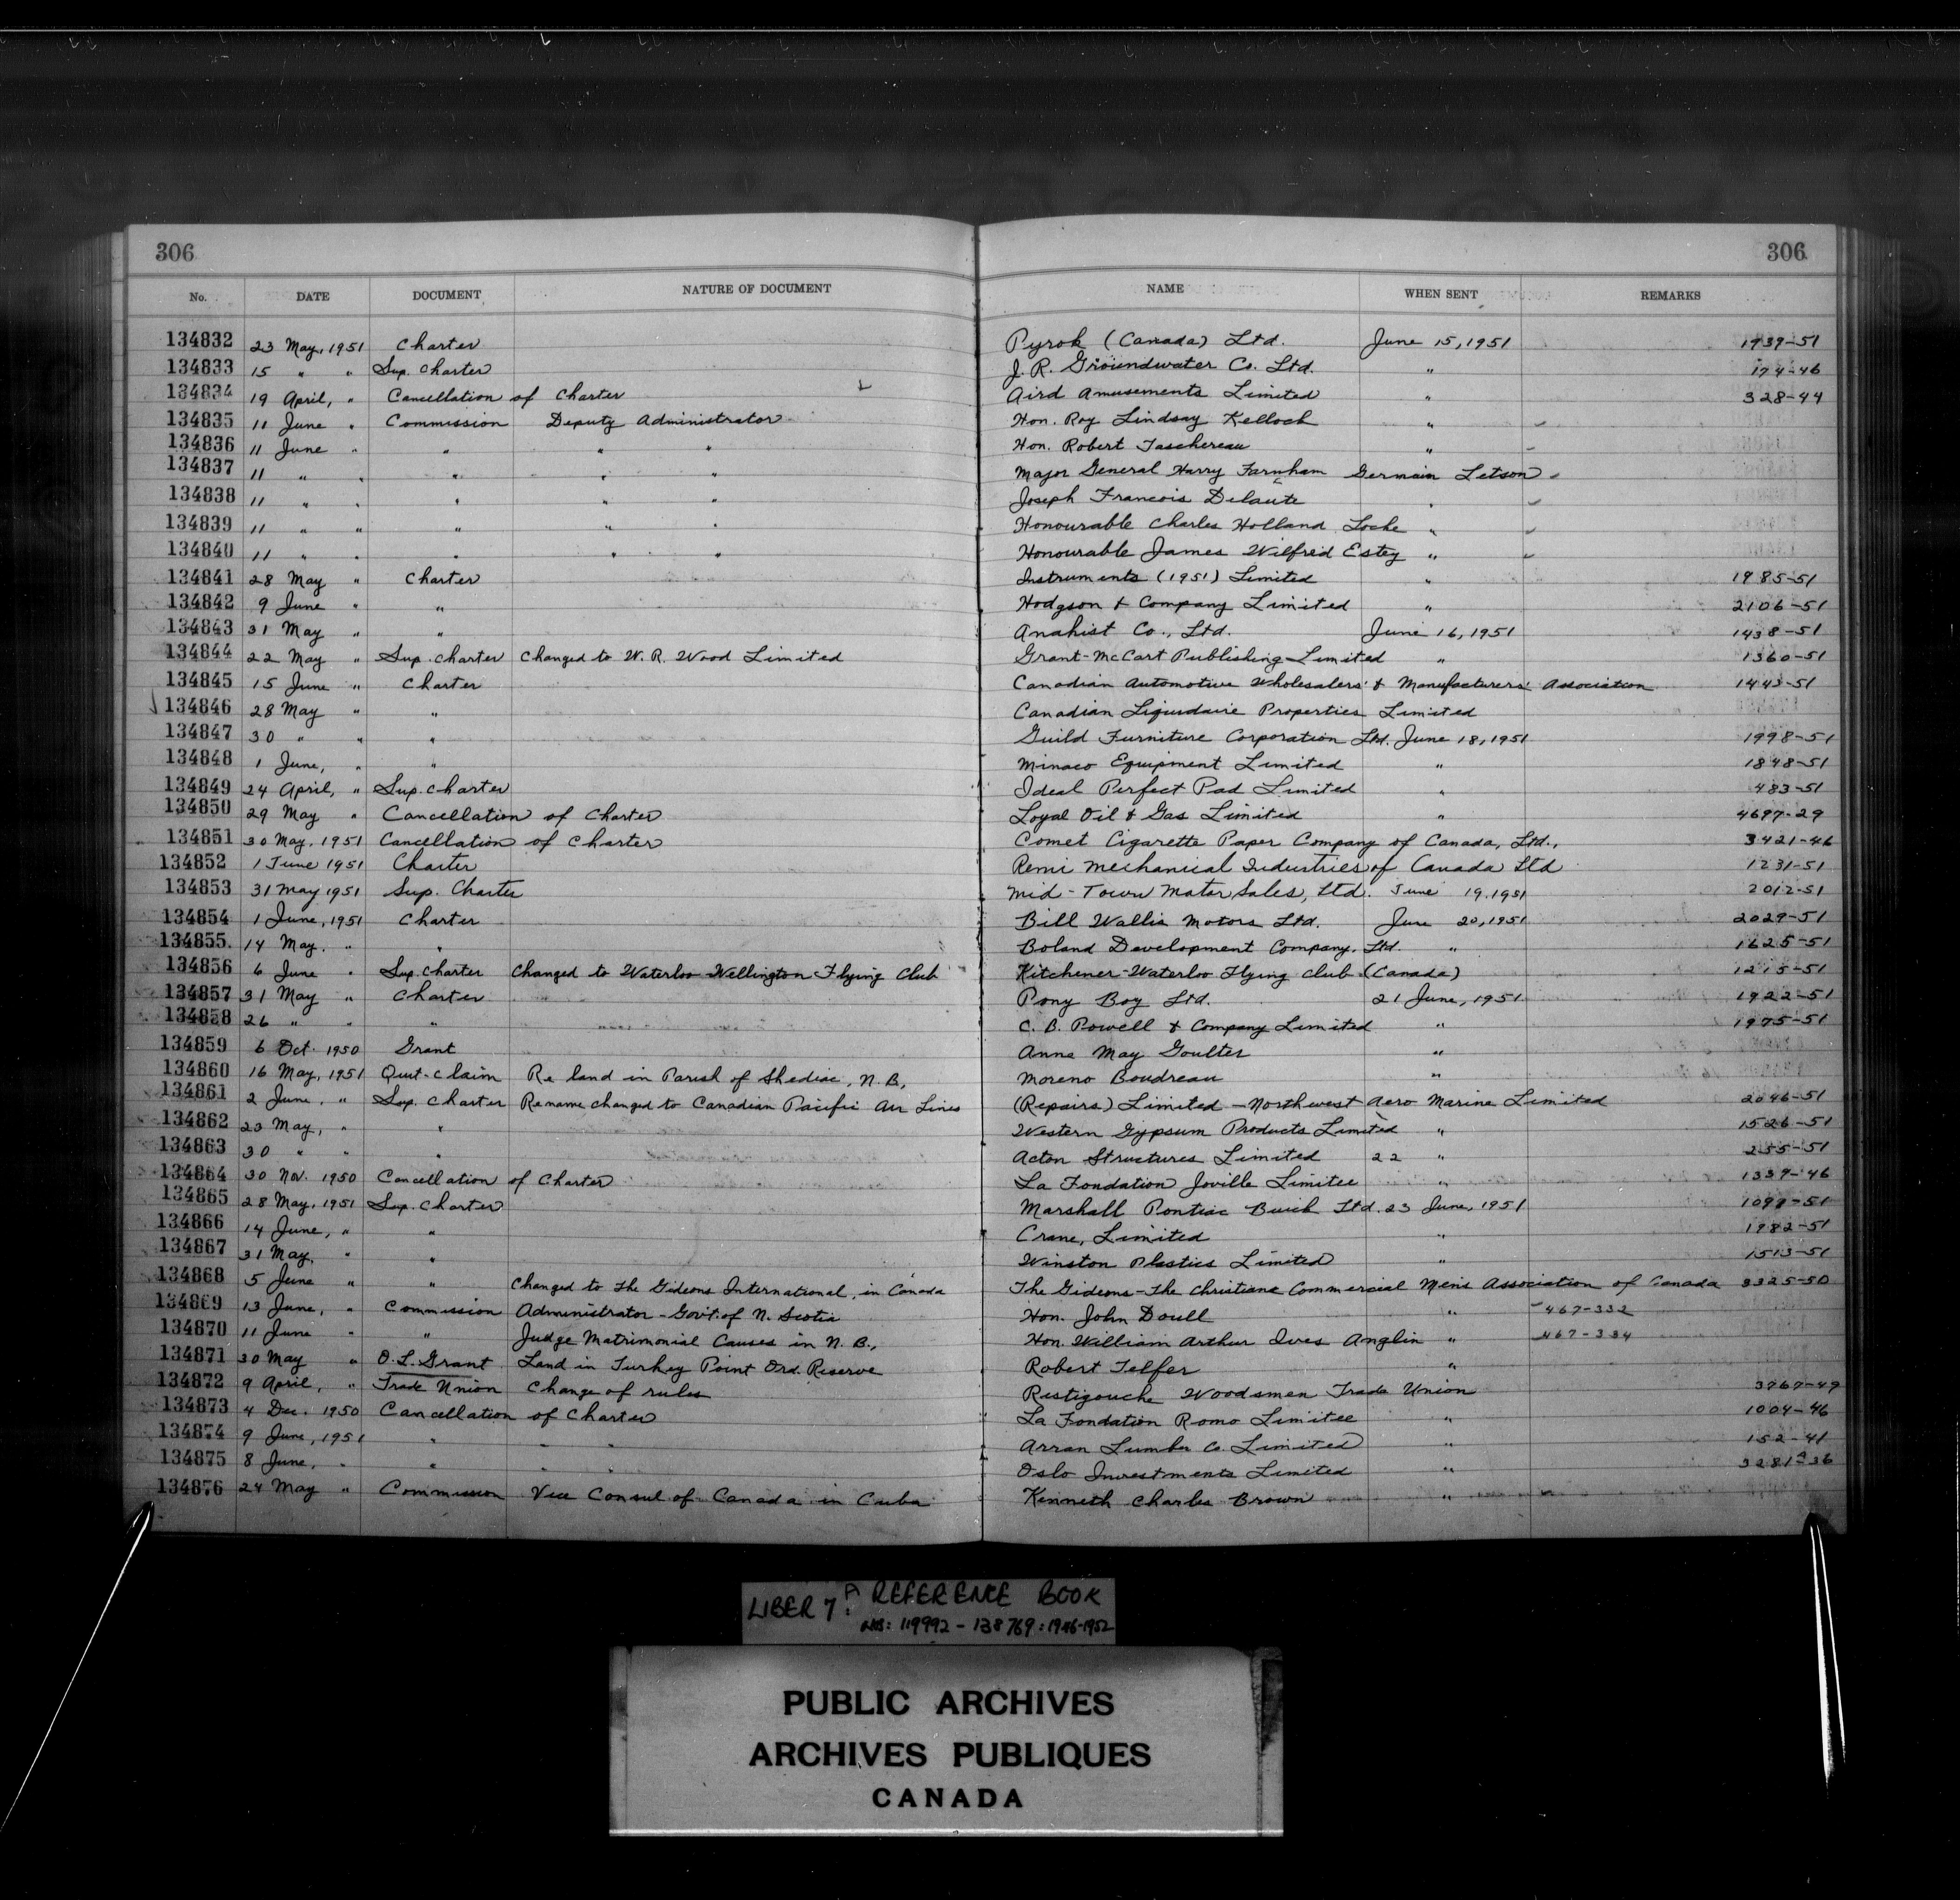 306 306
No. DATE DOCUMENT NATURE OF DOCUMENT NAME WHEN SENT REMARKS
134832 23 May, 1951 Charter Pyrok (Canada) Ltd. June 15, 1951 1939-51
134833 15 " " Sup. Charter J. R. Groundwater Co. Ltd. " 174-46
134834 19 April, " Cancellation of Charter Aird Amusements Limited " 328-44
134835 11 June " Commission Deputy Administrator Hon. Roy Lindsay Kellock "
134836 11 June " " " " Hon. Robert Taschereau "
134837 11 " " " " " Major General Harry Farnham Germain Letson
134838 11 " " " " " Joseph Francois Delaute "
134839 11 " " " " " Honourable Charles Holland Locke "
134840 11 " " " " " Honourable James Wilfred Estey "
134841 28 May " Charter Instruments (1951) Limited " 1985-51
134842 9 June " " Hodgson & Company Limited " 2106-51
134843 31 May " " Anahist Co., Ltd. June 16, 1951 1438-51
134844 22 May " Sup. Charter Changed to W. R. Wood Limited Grant-McCart Publishing Limited " 1360-51
134845 15 June " Charter Canadian Automotive Wholesalers' & Manufacturers' Association 1443-51
134846 28 May " " Canadian Liquidaire Properties Limited
134847 30 " " " Guild Furniture Corporation Ltd. June 18, 1951 1998-51
134848 1 June, " " Minaco Equipment Limited " 1848-51
134849 24 April, " Sup. Charter Ideal Perfect Pad Limited " 483-51
134850 29 May " Cancellation of Charter Loyal Oil & Gas Limited " 4697-29
134851 30 May, 1951 Cancellation of Charter Comet Cigarette Paper Company of Canada, Ltd., 3421-46
134852 1 June 1951 Charter Remi Mechanical Industries of Canada Ltd 1231-51
134853 31 May 1951 Sup. Charter Mid-Town Motor Sales, Ltd. June 19, 1951 2012-51
134854 1 June, 1951 Charter Bill Wallis Motors Ltd. June 20, 1951 2029-51
134855. 14 May, " " Boland Development Company, Ltd. " 1625-51
134856 6 June " Sup. Charter Changed to Waterloo-Wellington Flying Club Kitchener-Waterloo Flying Club (Canada) 1215-51
134857 31 May " Charter Pony Boy Ltd. 21 June, 1951 1922-51
134858 26 " " " C. B. Powell & Company Limited " 1975-51
134859 6 Oct. 1950 Grant Anna May Goulter "
134860 16 May, 1951 Quit-Claim Re land in Parish of Shediac, N.B. Moreno Boudreau "
134861 2 June, " Sup. Charter Re name changed to Canadian Pacific Air Lines (Repairs) Limited - Northwest Aero Marine Limited 2046-51
134862 23 May, " " Western Gypsum Products Limited " 1526-51
134863 30 " " " Acton Structures Limited 22 " 255-51
134864 30 Nov. 1950 Cancellation of Charter La Fondation Joville Limitee " 1339-46
134865 28 May, 1951 Sup. Charter Marshall Pontiac Buick Ltd. 23 June, 1951 1099-51
134866 14 June, " " Crane, Limited " 1982-51
134867 31 May, " " Winston Plastics Limited " 1513-51
134868 5 June " " Changed to the Gideons International, in Canada The Gideons-The Christians Commercial Men's Association of Canada 3325-50
134869 13 June, " Commission Administrator - Gov't. of N. Scotia Hon. John Doull " 467-332
134870 11 June " " Judge Matrimonial Causes in N. B., Hon. William Arthur Ives Anglin " 467-334
134871 30 May " O.L. Grant Land in Turkey Point Ord. Reserve Robert Telfer "
134872 9 April, " Trade Union Change of rules Restigouche Woodsmen Trade Union 3767-49
134873 4 Dec. 1950 Cancellation of Charter La Fondation Romo Limitee " 1004-46
134874 9 June, 1951 " " " Arran Lumber Co. Limited " 152-41
134875 8 June, " " " " Oslo Investments Limited " 3281-36
134876 24 May " Commission Vice Consul of Canada in Cuba Kenneth Charles Brown "
LIBER 7A: REFERENCE BOOK
NOS: 119992 - 138769: 1946-1952
PUBLIC ARCHIVES
ARCHIVES PUBLIQUES
CANADA